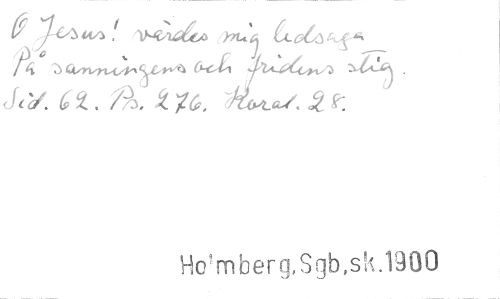 O Jesus! värdes mig ledsaga
På sanningens och fridens stig.
Sid. 62. Ps. 276. Koral. 28.
Holmberg, Sgb, sk. 1900